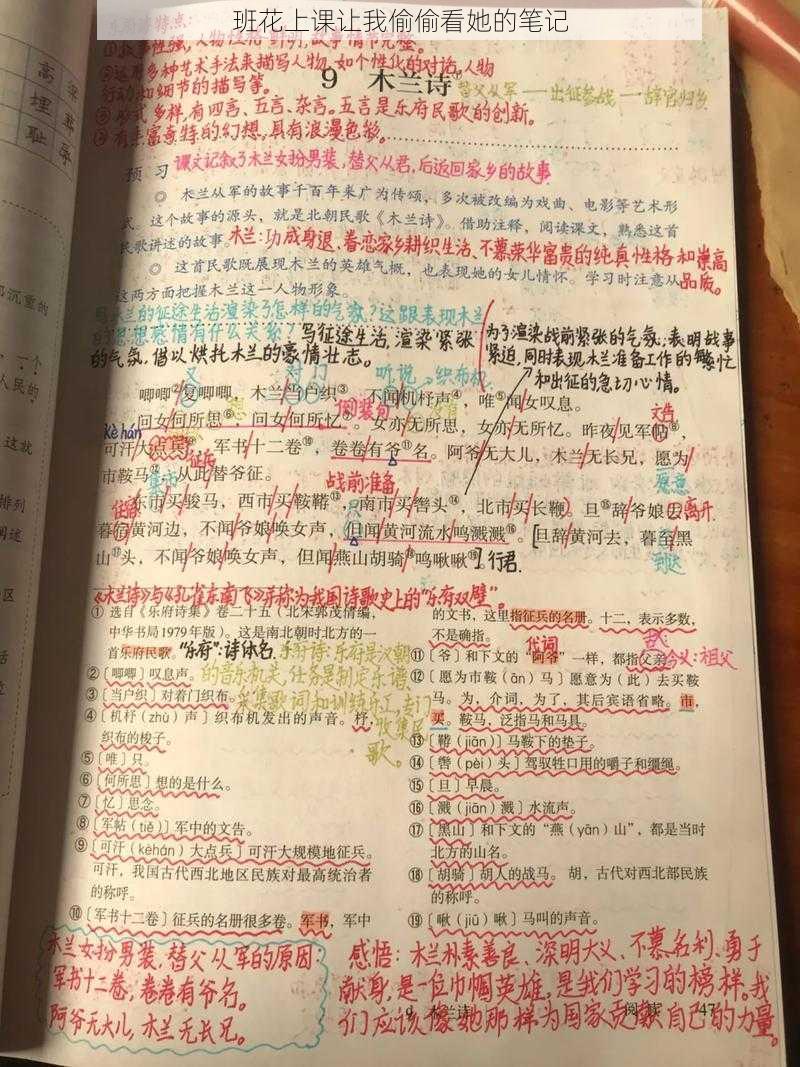 班花上课让我偷偷看她的笔记
①故事性强,人物性格鲜明,故事情节完整。
②运用多种艺术手法来描写人物,如个性化的对话,人物
行动和细节的描写等。
9 木兰诗
替父从军——出征参战——辞官归乡
③形式多样,有四言、五言、杂言。五言是乐府民歌的创新。
④有丰富奇特的幻想,具有浪漫色彩。
预 习
课文记叙了木兰女扮男装,替父从君,后返回家乡的故事
◎ 木兰从军的故事千百年来广为传颂,多次被改编为戏曲、电影等艺术形
式。这个故事的源头,就是北朝民歌《木兰诗》。借助注释,阅读课文,熟悉这首
民歌讲述的故事。
木兰:功成身退、眷恋家乡耕织生活、不慕荣华富贵的纯真性格和崇高
品质。
◎ 这首民歌既展现木兰的英雄气概,也表现她的女儿情怀。学习时注意从
这两方面把握木兰这一人物形象。
写木兰的征途生活渲染了怎样的气氛?这跟表现木兰
的思想感情有什么关系?
写征途生活,渲染紧张
的气氛,借以烘托木兰的豪情壮志。
为了渲染战前紧张的气氛,表明战事
紧迫,同时表现木兰准备工作的繁忙
和出征的急切心情。
又 对门 听说 织布机
唧唧②复唧唧,木兰当户织③。不闻机杼声④,唯⑤闻女叹息。
倒装句 文告
问女何所思⑥,问女何所忆⑦。女亦无所思,女亦无所忆。昨夜见军帖⑧,
kè hán
可汗大点兵⑨,军书十二卷⑩,卷卷有爷⑪名。阿爷无大儿,木兰无长兄,愿为
征兵
市鞍马⑫,从此替爷征。
集市 战前准备 愿意
东市买骏马,西市买鞍鞯⑬,南市买辔头⑭,北市买长鞭。旦⑮辞爷娘去,
离开
暮宿黄河边,不闻爷娘唤女声,但闻黄河流水鸣溅溅⑯。旦辞黄河去,暮至黑
只
山⑰头,不闻爷娘唤女声,但闻燕山胡骑⑱鸣啾啾⑲。
行君 到达
《木兰诗》与《孔雀东南飞》并称为我国诗歌史上的“乐府双壁”。
① 选自《乐府诗集》卷二十五(北宋郭茂倩编,
中华书局1979年版)。这是南北朝时北方的一
首乐府民歌。
“乐府”:诗体名,乐府诗:乐府是汉朝
的音乐机关,任务是制定乐谱、
采集歌词和训练乐工,专门
收集民
歌。
②〔唧唧〕叹息声。
③〔当户织〕对着门织布。
④〔机杼(zhù)声〕织布机发出的声音。杼,
织布的梭子。
⑤〔唯〕只。
⑥〔何所思〕想的是什么。
⑦〔忆〕思念。
⑧〔军帖(tiě)〕军中的文告。
⑨〔可汗(kèhán)大点兵〕可汗大规模地征兵。
可汗,我国古代西北地区民族对最高统治者
的称呼。
⑩〔军书十二卷〕征兵的名册很多卷。军书,军中
的文书,这里指征兵的名册。十二,表示多数,
不是确指。
代词
⑪〔爷〕和下文的“阿爷”一样,都指父亲。
今义:祖父
⑫〔愿为市鞍(ān)马〕愿意为(此)去买鞍
马。为,介词,为了,其后宾语省略。市,
买。鞍马,泛指马和马具。
⑬〔鞯(jiān)〕马鞍下的垫子。
⑭〔辔(pèi)头〕驾驭牲口用的嚼子和缰绳。
⑮〔旦〕早晨。
⑯〔溅(jiān)溅〕水流声。
⑰〔黑山〕和下文的“燕(yān)山”,都是当时
北方的山名。
⑱〔胡骑〕胡人的战马。胡,古代对西北部民族
的称呼。
⑲〔啾(jiū)啾〕马叫的声音。
木兰女扮男装,替父从军的原因:
军书十二卷,卷卷有爷名。
阿爷无大儿,木兰无长兄。
感悟:木兰朴素善良、深明大义、不慕名利、勇于
献身,是一位巾帼英雄,是我们学习的榜样。我
们应该像她那样为国家贡献自己的力量。
9 木兰诗 阅读 47